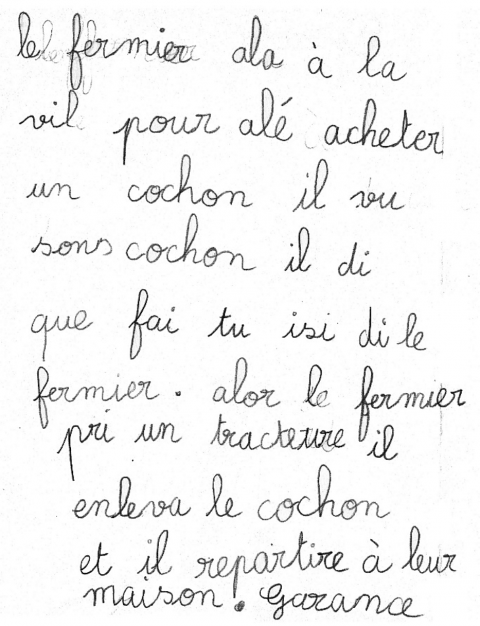 le fermier ala à la
vil pour alé acheter
un cochon il vu
sons cochon il di
que fai tu isi di le
fermier. alor le fermier
pri un tracteure il
enleva le cochon
et il repartire à leur
maison. Garance